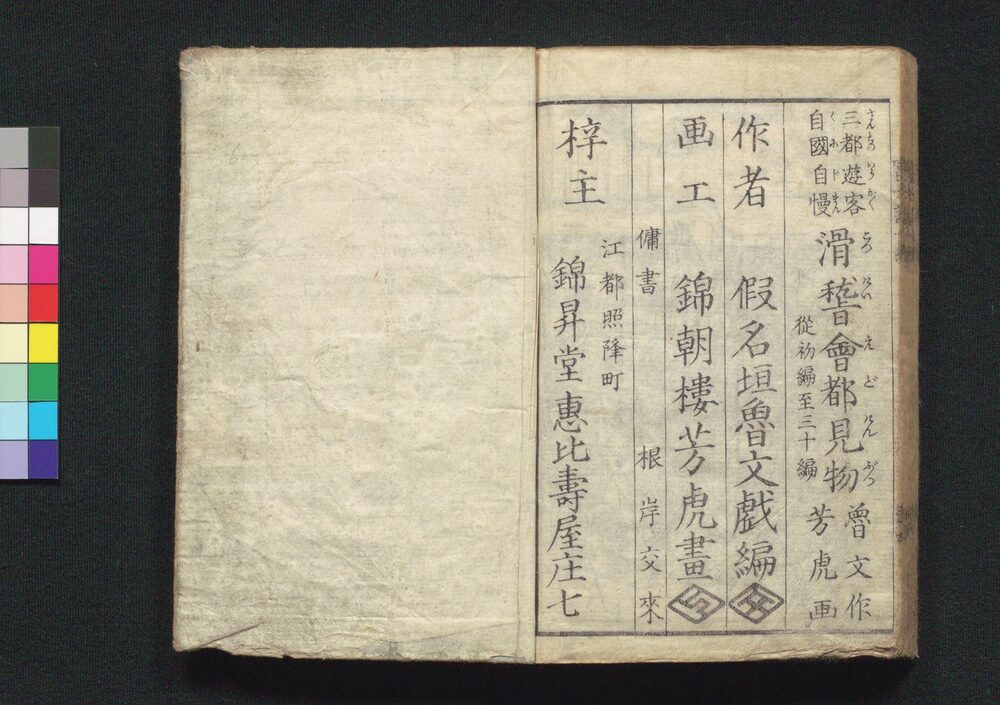 三都遊客
自國自慢
滑稽會都見物
從初編至三十編
魯文作
芳虎画
作者 假名垣魯文戯編
画工 錦朝樓芳虎畫
傭書 根岸交來
江都照降町
梓主 錦昇堂惠比壽屋庄七